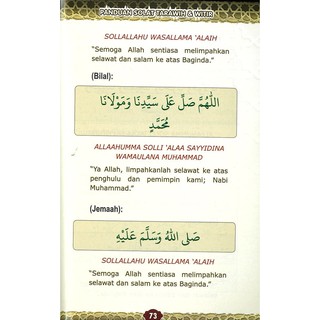 PANDUAN SOLAT TARAWIH & WITIR
SOLLALLAHU WASALLAMA 'ALAIH
"Semoga Allah sentiasa melimpahkan
selawat dan salam ke atas Baginda."
(Bilal):
اَللّٰهُمَّ صَلِّ عَلَى سَيِّدِنَا وَمَوْلَانَا
مُحَمَّدٍ
ALLAAHUMMA SOLLI 'ALAA SAYYIDINA
WAMAULANA MUHAMMAD
"Ya Allah, limpahkanlah selawat ke atas
penghulu dan pemimpin kami; Nabi
Muhammad."
(Jemaah):
صَلَى اللهُ وَسَلَّمَ عَلَيْهِ
SOLLALLAHU WASALLAMA 'ALAIH
"Semoga Allah sentiasa melimpahkan
selawat dan salam ke atas Baginda."
73